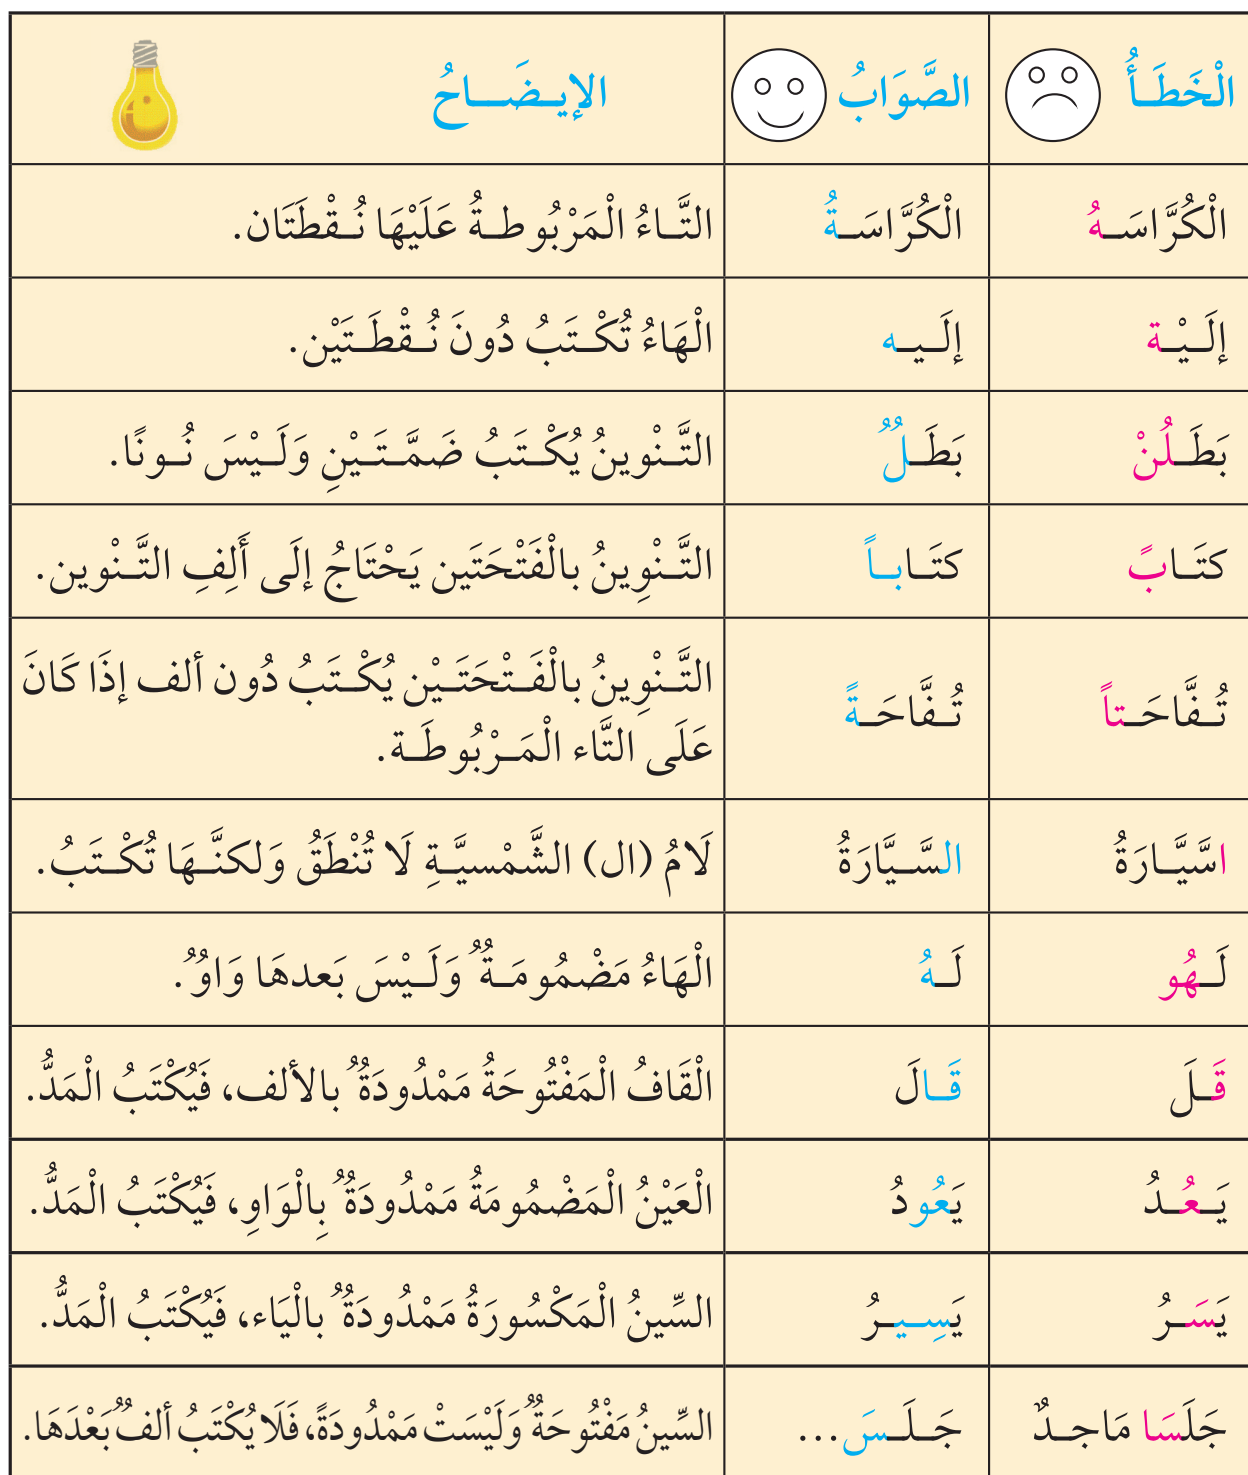 الْخَطَأُ الصَّوَابُ الإيضَاحُ
الْكُرَّاسَهُ الْكُرَّاسَةُ التَّاءُ الْمَرْبُوطةُ عَلَيْهَا نُقْطَتَان.
إلَيْة إلَيه الْهَاءُ تُكْتَبُ دُونَ نُقْطَتَيْن.
بَطَلُنْ بَطَلٌ التَّنْوينُ يُكْتَبُ ضَمَّتَيْنِ وَلَيْسَ نُونًا.
كتَابً كتَاباً التَّنْوِينُ بالْفَتْحَتَين يَحْتَاجُ إلَى أَلِفِ التَّنْوين.
تُفَّاحَتاً تُفَّاحَةً التَّنْوِينُ بالْفَتْحَتَيْن يُكْتَبُ دُون ألف إذَا كَانَ
عَلَى التَّاء الْمَرْبُوطَة.
اسَّيَّارَةُ السَّيَّارَةُ لَامُ (ال) الشَّمْسيَّةِ لَا تُنْطَقُ وَلكنَّهَا تُكْتَبُ.
لَهُو لَهُ الْهَاءُ مَضْمُومَةٌ وَلَيْسَ بَعدهَا وَاوٌ.
قَلَ قَالَ الْقَافُ الْمَفْتُوحَةُ مَمْدُودَةٌ بالألف، فَيُكْتَبُ الْمَدُّ.
يَعُدُ يَعُودُ الْعَيْنُ الْمَضْمُومَةُ مَمْدُودَةٌ بِالْوَاوِ، فَيُكْتَبُ الْمَدُّ.
يَسَرُ يَسِيرُ السِّينُ الْمَكْسُورَةُ مَمْدُودَةٌ بالْيَاء، فَيُكْتَبُ الْمَدُّ.
جَلَسَا مَاجدٌ جَلَسَ... السِّينُ مَفْتُوحَةٌ وَلَيْسَتْ مَمْدُودَةً، فَلَا يُكْتَبُ ألفٌ بَعْدَهَا.